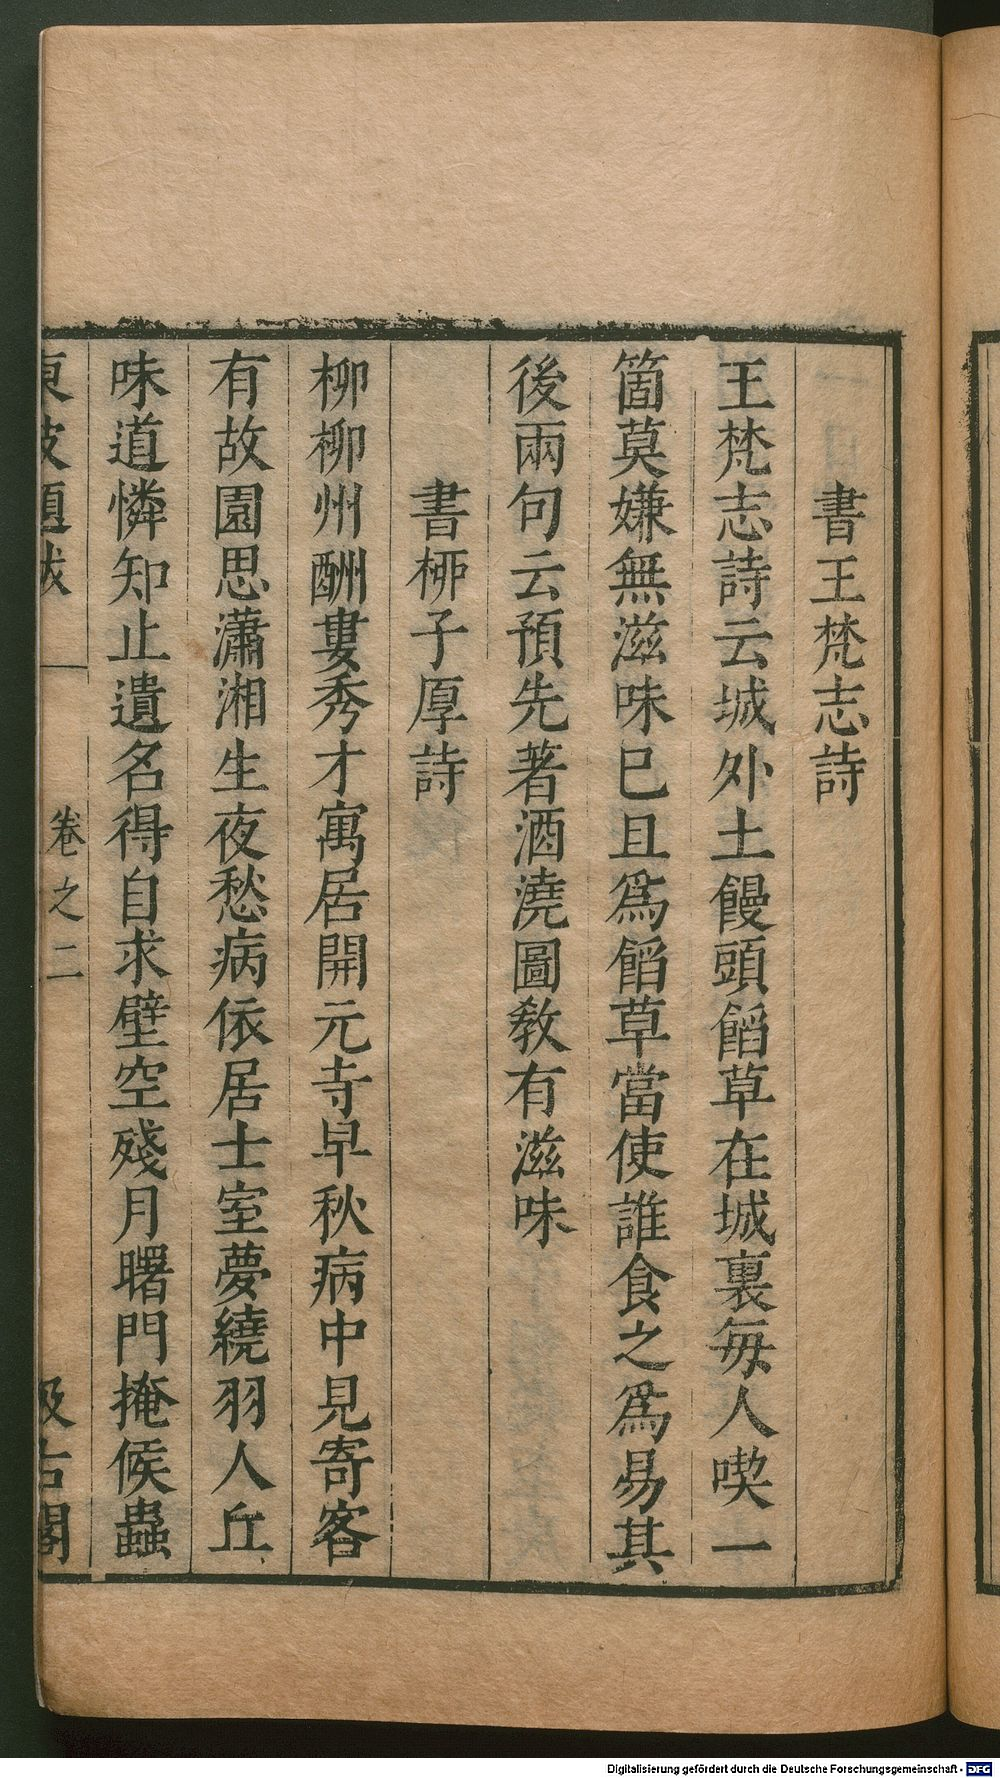 書王梵志詩
王梵志詩云城外土饅頭餡草在城裏每人喫一
箇莫嫌無滋味已且爲餡草當使誰食之爲易其
後兩句云預先著酒澆圖敎有滋味
書柳子厚詩
柳柳州酬婁秀才寓居開元寺早秋病中見寄客
有故園思瀟湘生夜愁病依居士室夢繞羽人丘
味道憐知止遺名得自求壁空殘月曙門掩候蟲
東坡題跋
卷之二
汲古閣
Digitalisierung gefördert durch die Deutsche Forschungsgemeinschaft - DFG